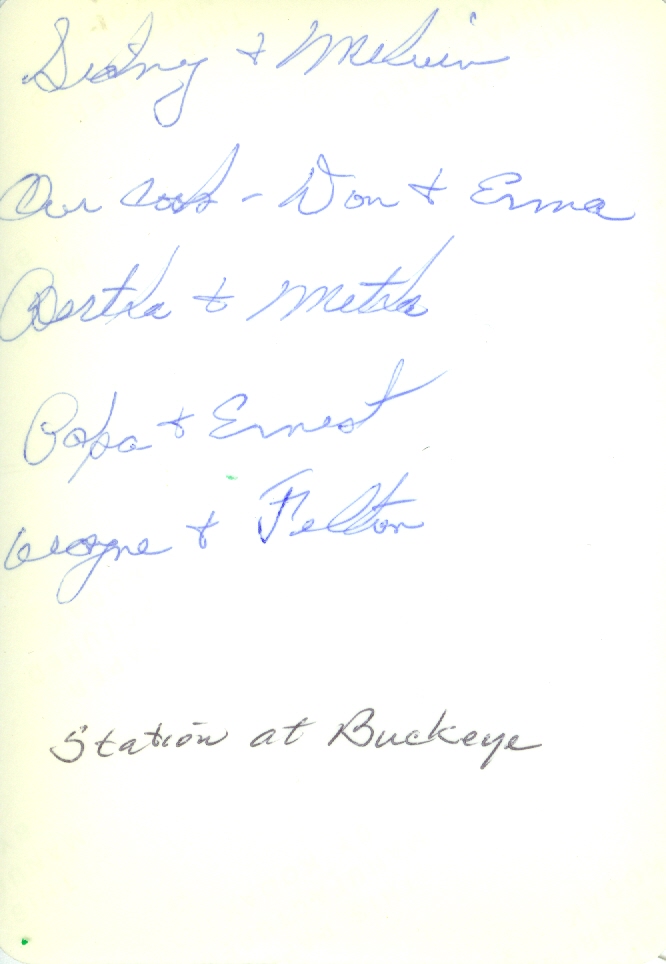 Sidney & Melvin
Our cook - Don & Erma
Bertha & Metha
Papa & Ernest
Wayne & Felton
Station at Buckeye